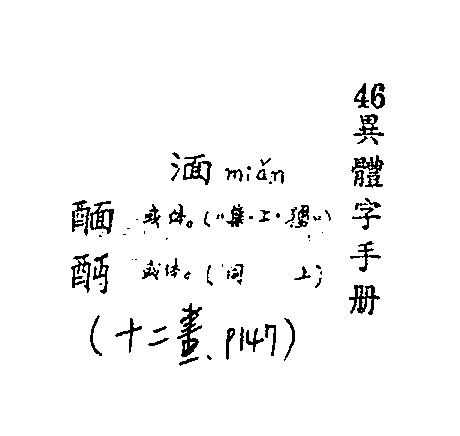 46異體字手册
湎 miǎn
或体。(《集·上·獮》)
或体。(同 上)
(十二畫、P147)